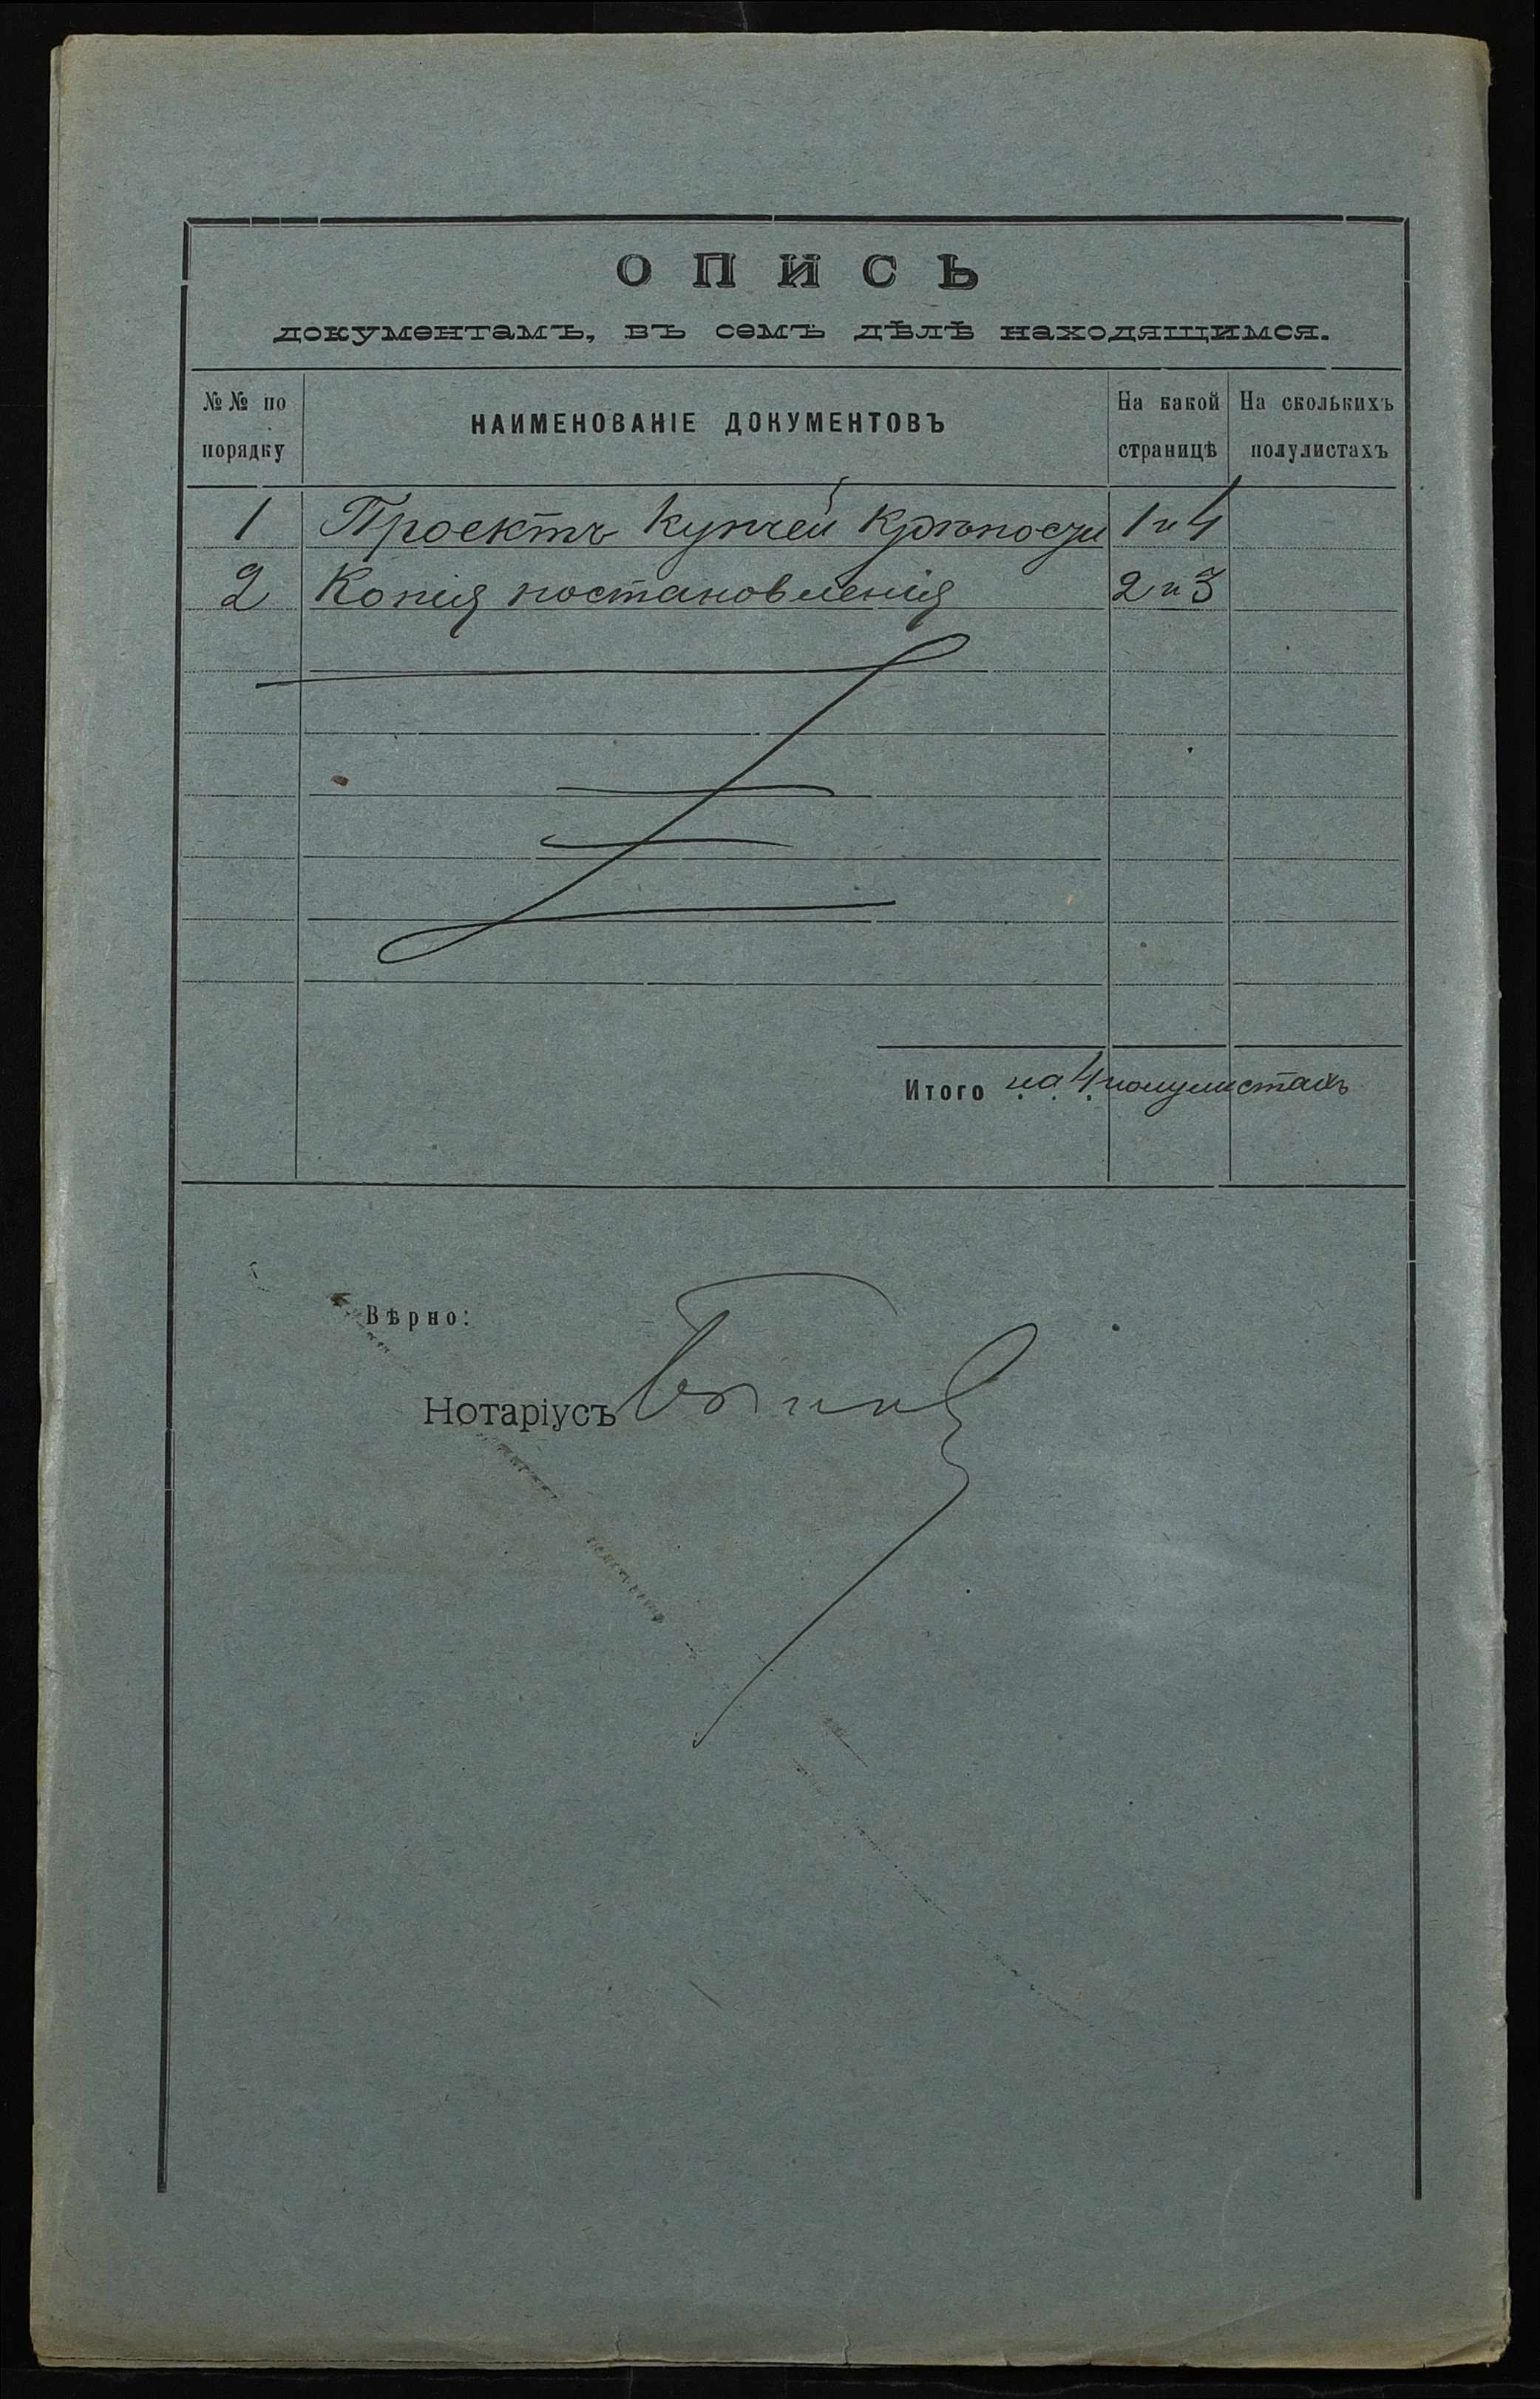 ОПИСЬ
документамъ, въ семъ дѣлѣ находящимся.
№№ по порядку
НАИМЕНОВАНІЕ ДОКУМЕНТОВЪ
На какой страницѣ
На сколькихъ полулистахъ
1 Проектъ купчей крѣпости 1 и 4
2 Копія постановленія 2 и 3
Итого на 4 полулистахъ
Вѣрно:
Нотаріусъ